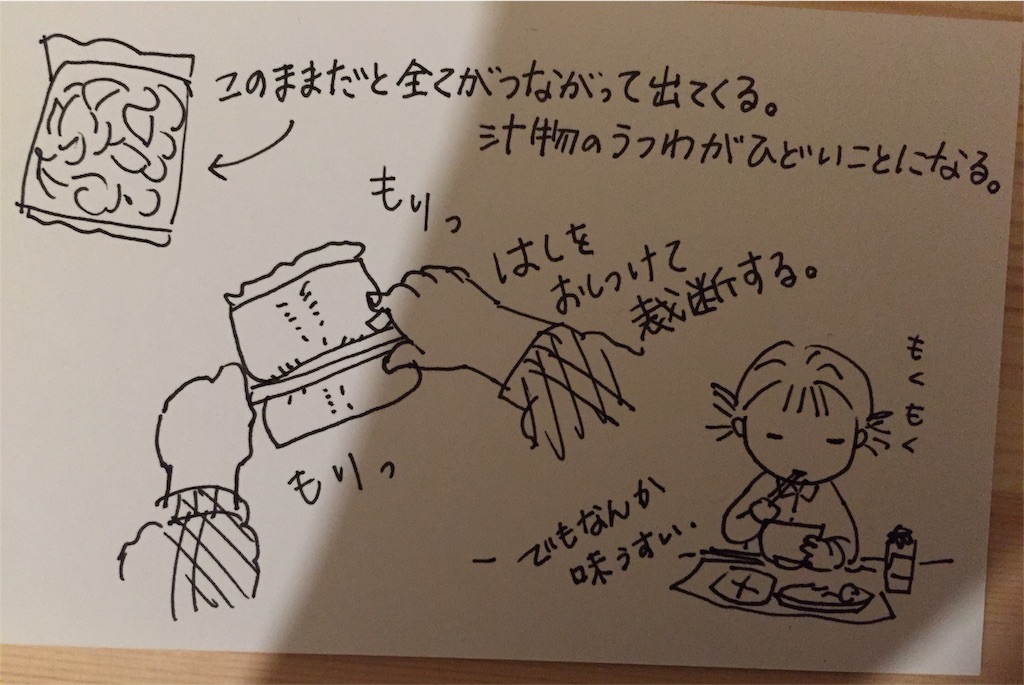 このままだと全てがつながって出てくる。
汁物のうつわがひどいことになる。
もりっ
はしを
おしつけて
裁断する。
もりっ
もくもく
でもなんか
味うすい.